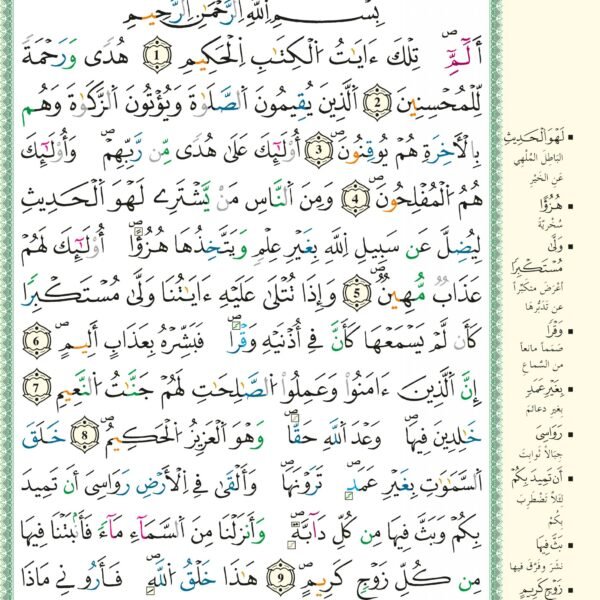 بِسْمِ اِللَّهِ اِلرَّحْمَٰنِ اِلرَّحِيمِ
أَلَٓمِّٓۖ تِلْكَ ءَايَٰتُ اُلْكِتَٰبِ اِلْحَكِيمِۖ 1 هُدٗى وَرَحْمَةٗ
لِّلْمُحْسِنِينَ 2 اَلذِينَ يُقِيمُونَ اَلصَّلَوٰةَ وَيُؤْتُونَ اَلزَّكَوٰةَ وَهُم
بِالَاخِرَةِ هُمْ يُوقِنُونَۖ 3 أُوْلَٰٓئِكَ عَلَىٰ هُدٗى مِّن رَّبِّهِمْۖ وَأُوْلَٰٓئِكَ
هُمُ اُلْمُفْلِحُونَۖ 4 وَمِنَ اَلنَّاسِ مَنْ يَّشْتَرِے لَهْوَ اَلْحَدِيثِ
لِيُضِلَّ عَن سَبِيلِ اِللَّهِ بِغَيْرِ عِلْمٖ وَيَتَّخِذُهَا هُزُؤاًۖ أُوْلَٰٓئِكَ لَهُمْ
عَذَابٞ مُّهِينٞۖ 5 وَإِذَا تُتْلَىٰ عَلَيْهِ ءَايَٰتُنَا وَلَّىٰ مُسْتَكْبِراٗ
كَأَن لَّمْ يَسْمَعْهَا كَأَنَّ فِے أُذْنَيْهِ وَقْراٗۖ فَبَشِّرْهُ بِعَذَابٍ اَلِيمٍۖ 6
اِنَّ اَلذِينَ ءَامَنُواْ وَعَمِلُواْ اُلصَّٰلِحَٰتِ لَهُمْ جَنَّٰتُ اُلنَّعِيمِ 7
خَٰلِدِينَ فِيهَاۖ وَعْدَ اَللَّهِ حَقّاٗۖ وَهُوَ اَلْعَزِيزُ اُلْحَكِيمُۖ 8 خَلَقَ
اَلسَّمَٰوَٰتِ بِغَيْرِ عَمَدٖ تَرَوْنَهَاۖ وَأَلْقَىٰ فِے اِلَارْضِ رَوَٰسِيَ أَن تَمِيدَ
بِكُمْ وَبَثَّ فِيهَا مِن كُلِّ دَآبَّةٖۖ وَأَنزَلْنَا مِنَ اَلسَّمَآءِ مَآءٗ فَأَنۢبَتْنَا فِيهَا
مِن كُلِّ زَوْجٖ كَرِيمٍۖ 9 هَٰذَا خَلْقُ اُللَّهِۖ فَأَرُونِے مَاذَا
▪ لَهْوَ اَلْحَدِيثِ
البَاطِلَ المُلْهِي
عَنِ الخَيْرِ
▪ هُزُؤاً
سُخْرِيَةً
▪ وَلَّىٰ
مُسْتَكْبِراٗ
أعْرَضَ مُتَكَبِّراً
عن تَدَبُّرِهَا
▪ وَقْراٗ
صَمَماً مانِعاً
من السَّماعِ
▪ بِغَيْرِ عَمَدٖ
بِغَيْرِ دعَائمَ
▪ رَوَٰسِيَ
جِبَالاً ثَوابِتَ
▪ أَن تَمِيدَ بِكُمْ
لِئَلاَّ تَضْطَرِبَ
بِكُمْ
▪ بَثَّ فِيهَا
نَشَرَ وَفَرَّقَ فيها
▪ زَوْجٖ كَرِيمٍ